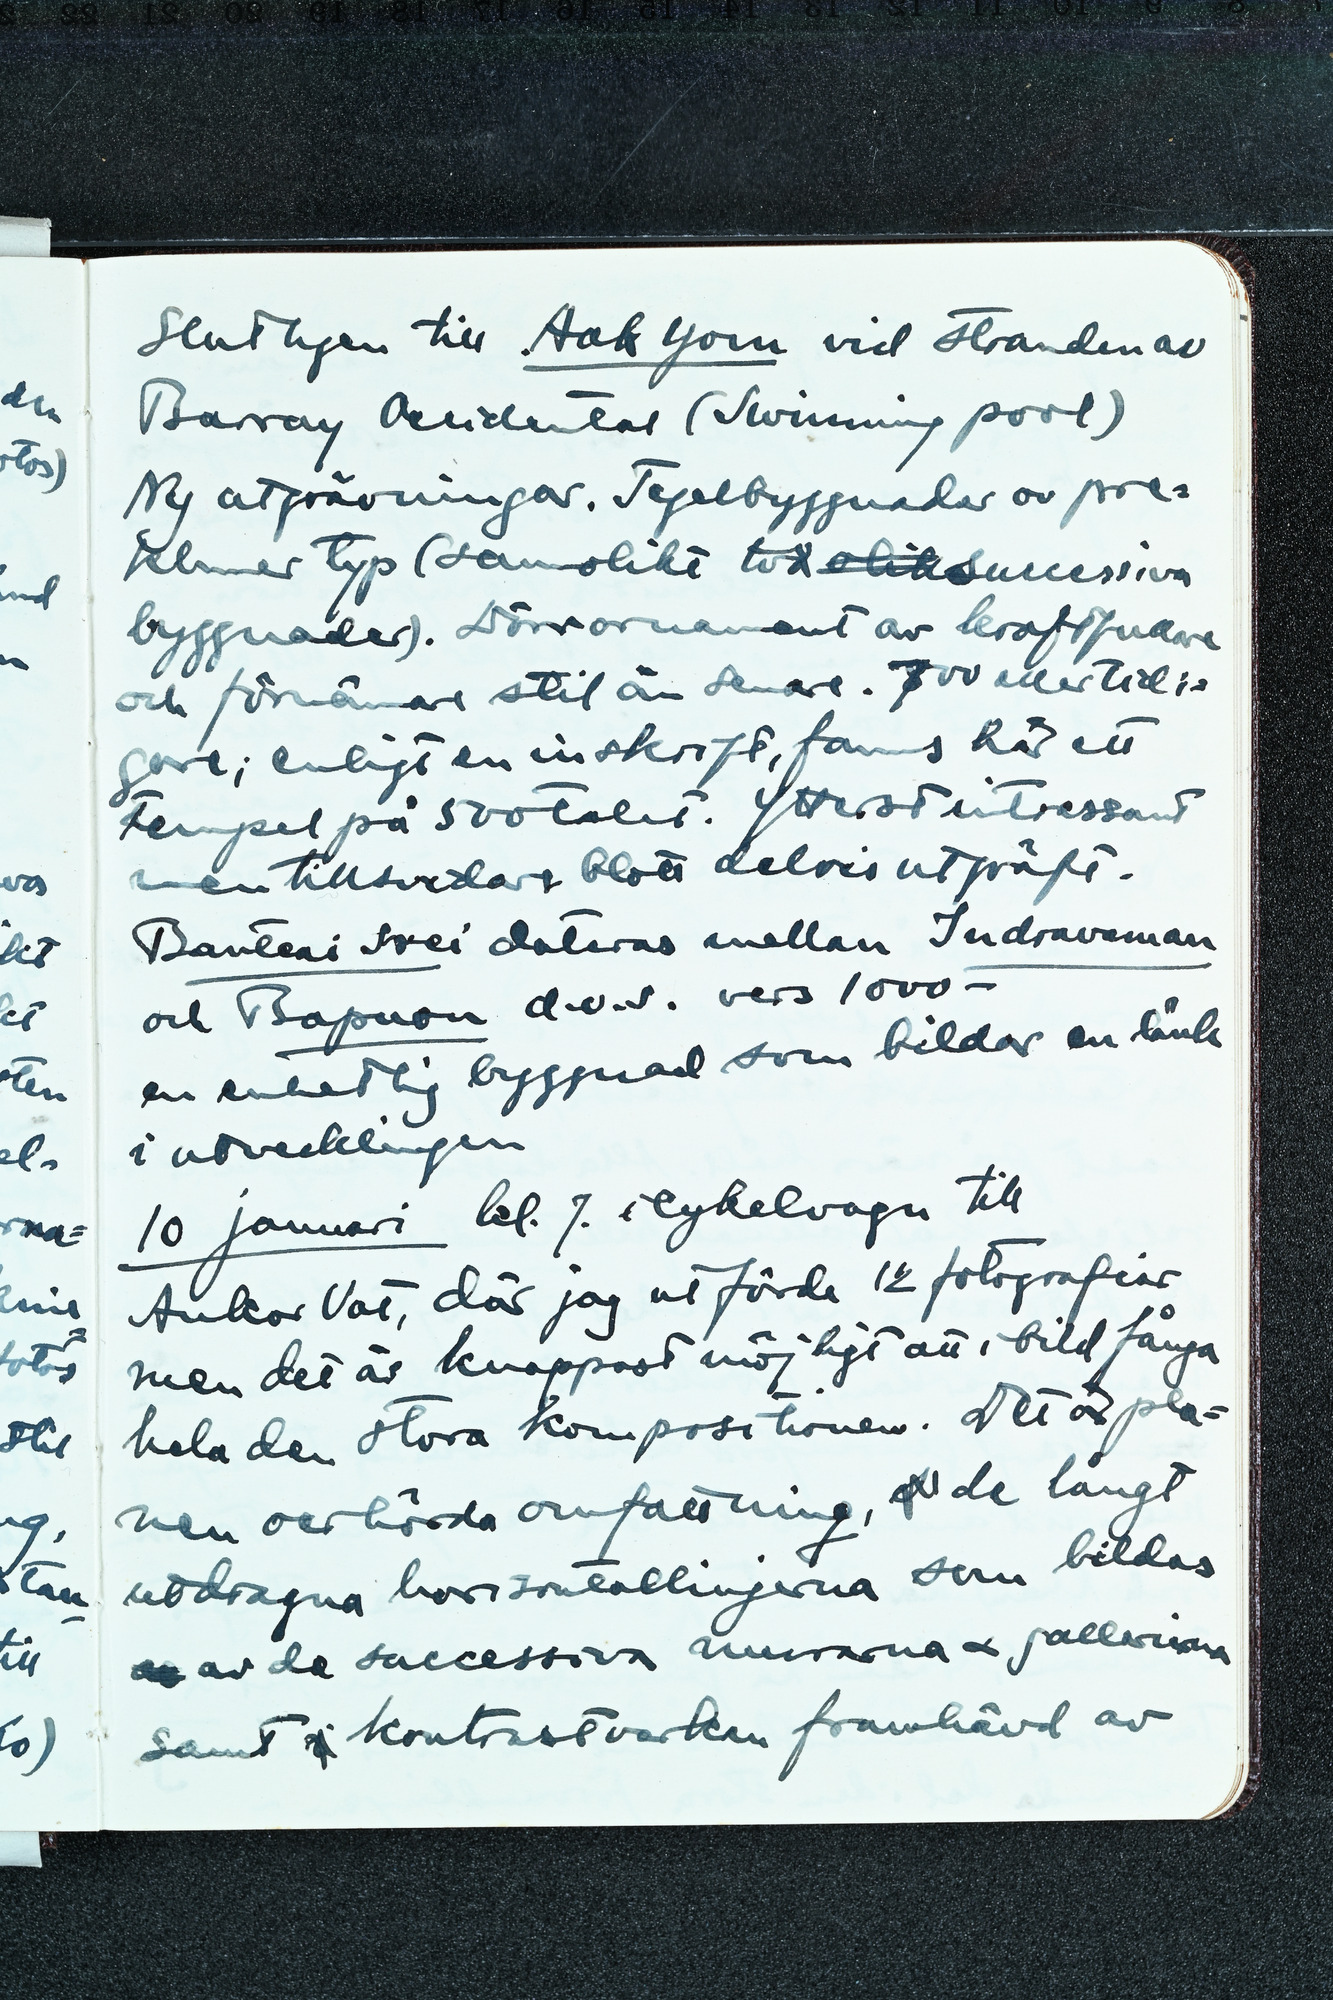 Slutligen till Aak Yom vid stranden av
Barray Occidental (Swimming pool)
Ny utgrävningar. Tegelbyggnader av pre=
khmer typ (sannolikt två successiva
byggnader). Dörrornament av kraftfullare
och förnämare stil än senare. 700 eller tidi=
gare; enligt en inskrift, fanns här ett
tempel på 500talet. Ytterst intressant
men tillsvidare blott delvis utgräft.
Banteai Srei dateras mellan Indravarman
och Bapuon d.v.s. vers 1000 –
en enhetlig byggnad som bildar en länk
i utvecklingen
10 januari kl. 7. i cykelvagn till
Ankor Vat, där jag utförde 12 fotografier
men det är knappast möjligt att i bild fånga
hela den stora kompositionen. Det är pla=
nen oerhörda omfattning, de långt
utdragna horisontallinjerna som bildas
av de successiva murarna & gallerierna
samt i kontrastverkan framhävd av
den
otos)
und
n
va
likt
ket
ten
el.
rna=
fotos
stil
ng,
tan
till
to)
7 8 9 10 11 12 13 14 15 16 17 18 19 20 21 22 2